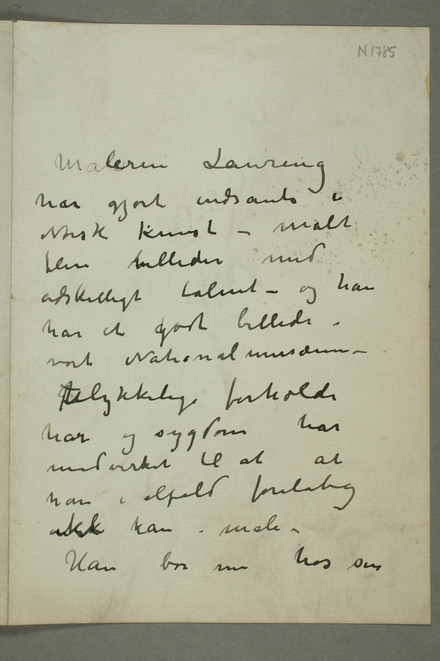 N 1785
Maleren Laureng
har gjort indsats i
Norsk Kunst – malt
flere billeder med
adskilligt talent – og han
har et godt billede i
vort Nationalmusæum –
Ulykkelige forholde
har og sygdom har
medvirket til at at
han i alfald foreløbig
ikke kan male –
Han bor nu hos sin